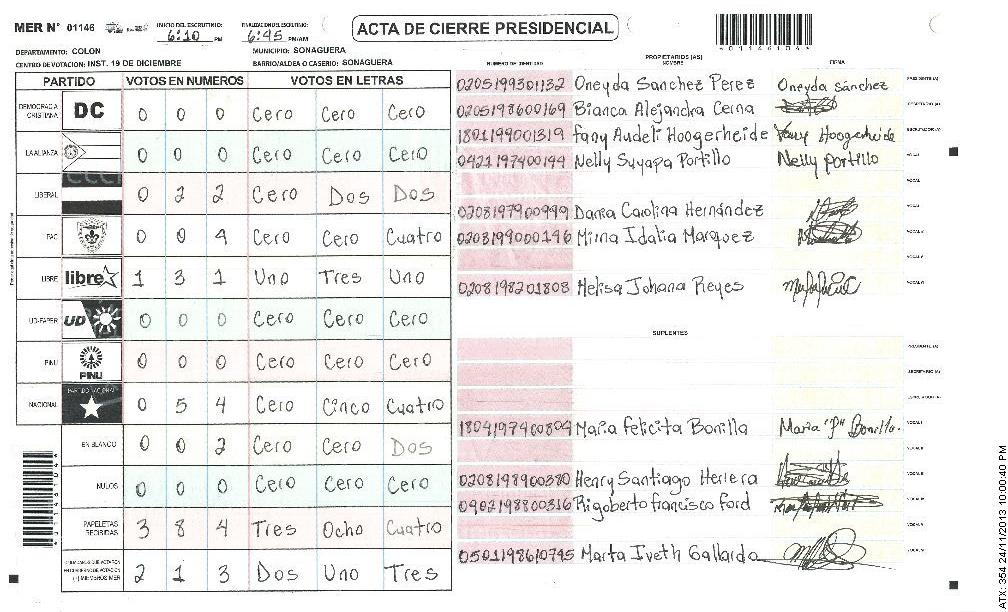 MER N° 01146
INICIO DEL ESCRUTINIO: 6:10 PM
FINALIZACION DEL ESCRUTINIO: 6:45 PM/AM
ACTA DE CIERRE PRESIDENCIAL
DEPARTAMENTO: COLON
MUNICIPIO: SONAGUERA
CENTRO DE VOTACION: INST. 19 DE DICIEMBRE
BARRIO/ALDEA O CASERIO: SONAGUERA
PARTIDO VOTOS EN NUMEROS VOTOS EN LETRAS
DEMOCRACIA CRISTIANA DC 0 0 0 Cero Cero Cero
LA ALIANZA 0 0 0 Cero Cero Cero
LIBERAL 0 2 2 Cero Dos Dos
PAC 0 0 4 Cero Cero Cuatro
LIBRE libre 1 3 1 Uno Tres Uno
UD-FAPER UD 0 0 0 Cero Cero Cero
PINU PINU 0 0 0 Cero Cero Cero
NACIONAL PARTIDO NACIONAL 0 5 4 Cero Cinco Cuatro
EN BLANCO 0 0 2 Cero Cero Dos
NULOS 0 0 0 Cero Cero Cero
PAPELETAS RECIBIDAS 3 8 4 Tres Ocho Cuatro
CIUDADANOS QUE VOTARON EN CUADERNO DE VOTACION (+) MIEMBROS MER 2 1 3 Dos Uno Tres
PROPIETARIOS (AS)
NUMERO DE IDENTIDAD NOMBRE FIRMA
0205199301132 Oneyda Sanchez Perez Oneyda Sánchez PRESIDENTE (A)
0205198600169 Bianca Alejandra Cerna SECRETARIO (A)
1801199001319 Fany Audeli Hoogerheide Fany Hoogerheide ESCRUTADOR (A)
0421197400144 Nelly Suyapa Portillo Nelly Portillo VOCAL I
VOCAL
0208197900999 Dania Carolina Hernández VOCAL
0203199000196 Mirna Idalia Marquez VOCAL
VOCAL
0208198201808 Melisa Johana Reyes VOCAL
SUPLENTES
PRESIDENTE (A)
SECRETARIO (A)
ESCRUTADOR (A)
1804197400804 Maria Felicita Bonilla Maria "F" Bonilla. VOCAL I
VOCAL
0208198900380 Henry Santiago Herrera VOCAL
0902198800316 Rigoberto francisco Ford VOCAL
VOCAL
0501198610795 Marta Iveth Gallardo VOCAL
ATX: 354 24/11/2013 10:00:40 PM